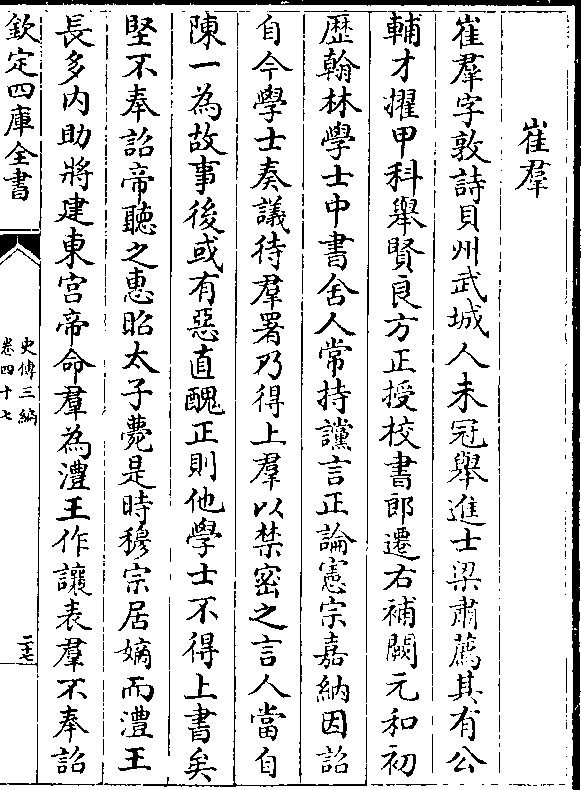 崔羣
崔羣字敦詩貝州武城人未冠舉進士梁肅薦其有公
輔才擢甲科舉賢良方正授校書郎遷右補闕元和初
歷翰林學士中書舍人常持讜言正論憲宗嘉納因詔
自今學士奏議待羣署乃得上羣以禁密之言人當自
陳一為故事後或有惡直醜正則他學士不得上書矣
堅不奉詔帝聽之惠昭太子薨是時穆宗居嫡而澧王
長多內助將建東宮帝命羣為澧王作讓表羣不奉詔
欽定四庫全書
史傳三編
卷四十七
二十七